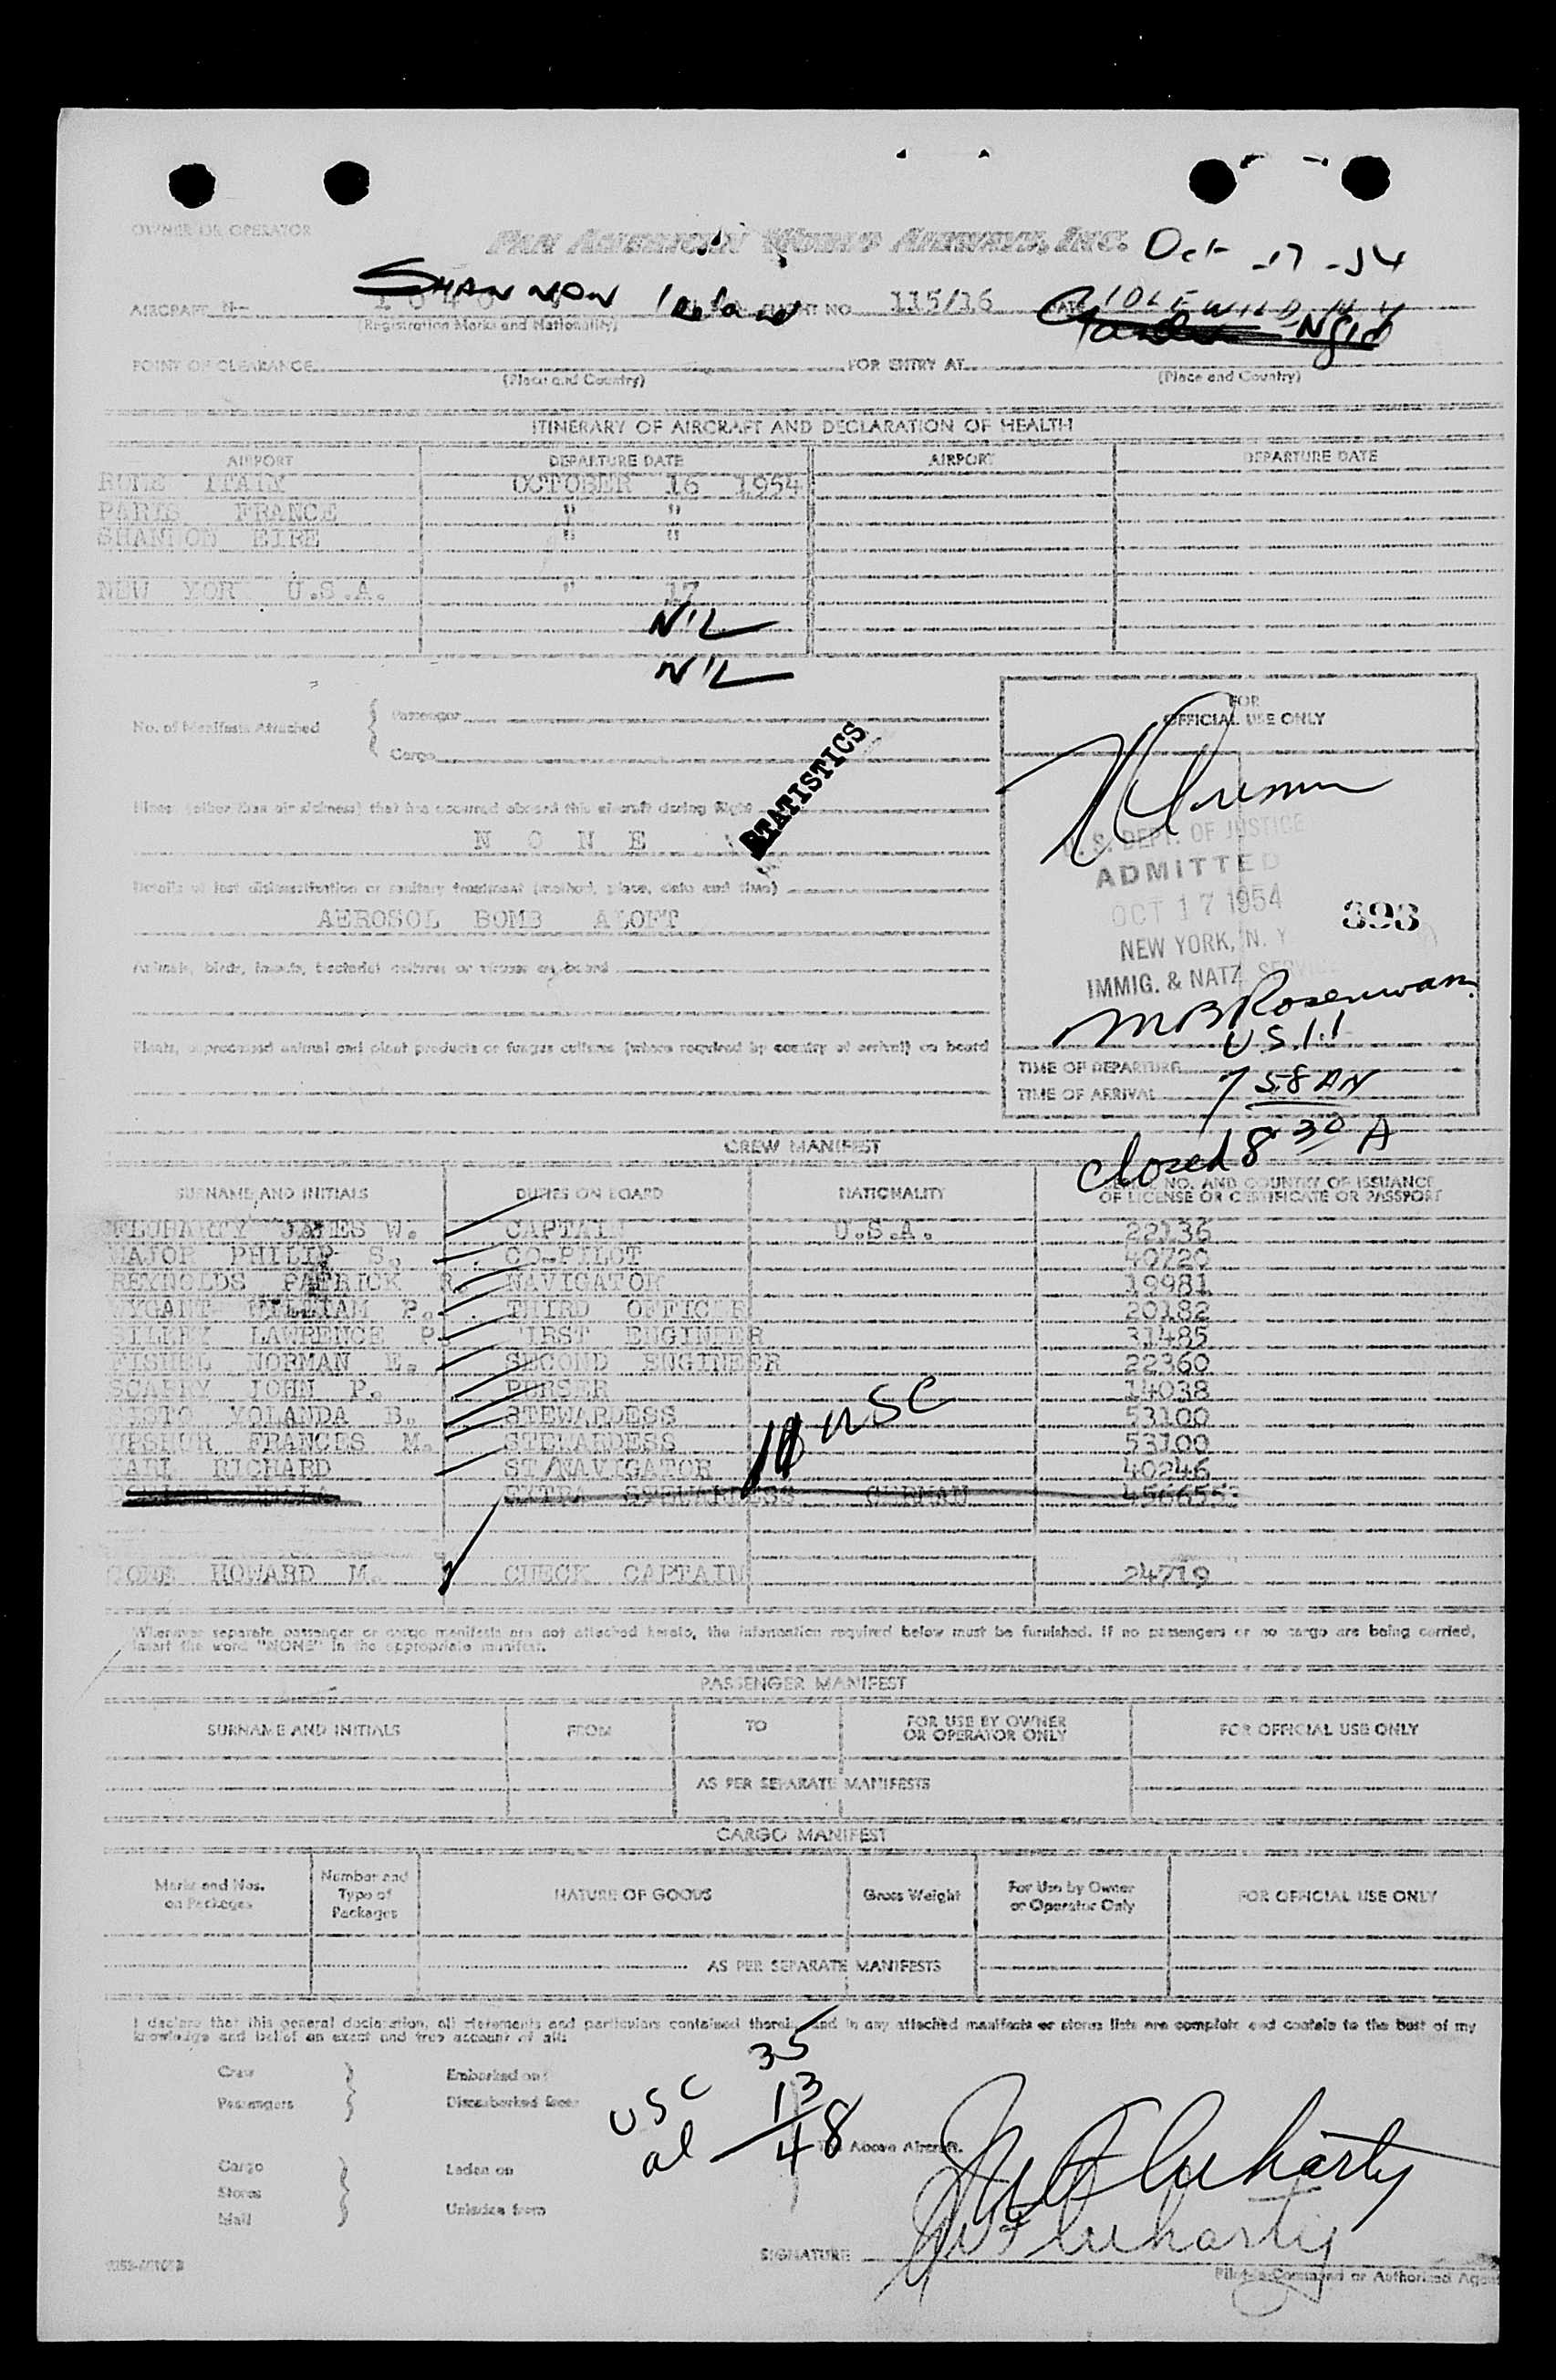 OWNER OR OPERATOR
PAN AMERICAN WORLD AIRWAYS, INC.
Oct -17-54
SHANNON Ireland
IDLEWILD N Y
AIRCRAFT N- FLIGHT NO. 115/16 DATE
(Registration Marks and Nationality)
Gander Nfld
POINT OF CLEARANCE FOR ENTRY AT
(Place and Country) (Place and Country)
ITINERARY OF AIRCRAFT AND DECLARATION OF HEALTH
AIRPORT DEPARTURE DATE AIRPORT DEPARTURE DATE
ROME ITALY OCTOBER 16 1954
PARIS FRANCE " "
SHANNON EIRE " "
NEW YOR U.S.A. " 17
NIL
NIL
FOR
OFFICIAL USE ONLY
No. of Manifests Attached
Passenger
Cargo
STATISTICS
Illness (other than air sickness) that has occurred aboard this aircraft during flight
N O N E
Details of last disinsectization or sanitary treatment (method, place, date and time)
AEROSOL BOMB ALOFT
Animals, birds, insects, bacterial cultures or viruses on board
Plants, unprocessed animal and plant products or fungus cultures (where required by country of arrival) on board
U.S. DEPT. OF JUSTICE
ADMITTED
OCT 17 1954
393
NEW YORK, N. Y.
IMMIG. & NATZ SERVICE
M B Rosenwasn
U.S.I.I
TIME OF DEPARTURE
TIME OF ARRIVAL 7 58 AM
closed 8 30 A
CREW MANIFEST
SURNAME AND INITIALS DUTIES ON BOARD NATIONALITY NO. AND COUNTRY OF ISSUANCE
OF LICENSE OR CERTIFICATE OR PASSPORT
FLUHARTY JAMES W. CAPTAIN U.S.A. 22136
MAJOR PHILIP S. CO-PILOT 40720
REYNOLDS PATRICK R. NAVIGATOR 19981
WYGANT WILLIAM P. THIRD OFFICER 20182
LAWRENCE P. FIRST ENGINEER 31485
FISHEL NORMAN E. SECOND ENGINEER 22360
SCARRY JOHN P. PURSER 14038
YOLANDA B. STEWARDESS 53100
UPSHUR FRANCES M. STEWARDESS 53100
KARL RICHARD ST/NAVIGATOR 40246
EXTRA STEWARDESS GERMAN
USC
CONE HOWARD M. CHECK CAPTAIN 24719
Wherever separate passenger or cargo manifests are not attached hereto, the information required below must be furnished. If no passengers or no cargo are being carried,
insert the word "NONE" in the appropriate manifest.
PASSENGER MANIFEST
SURNAME AND INITIALS FROM TO FOR USE BY OWNER
OR OPERATOR ONLY FOR OFFICIAL USE ONLY
AS PER SEPARATE MANIFESTS
CARGO MANIFEST
Marks and Nos.
on Packages
Number and
Type of
Packages
NATURE OF GOODS
Gross Weight
For Use by Owner
or Operator Only
FOR OFFICIAL USE ONLY
AS PER SEPARATE MANIFESTS
I declare that this general declaration, all statements and particulars contained therein, and in any attached manifests or stores lists are complete and contain to the best of my
knowledge and belief an exact and true account of all:
Crew
Passengers
Embarked on
Disembarked from
USC 35
al 13
48
The Above Aircraft.
Cargo
Stores
Mail
Laden on
Unladen from
JW Fluharty
JW Fluharty
SIGNATURE
Pilot in Command or Authorized Agent